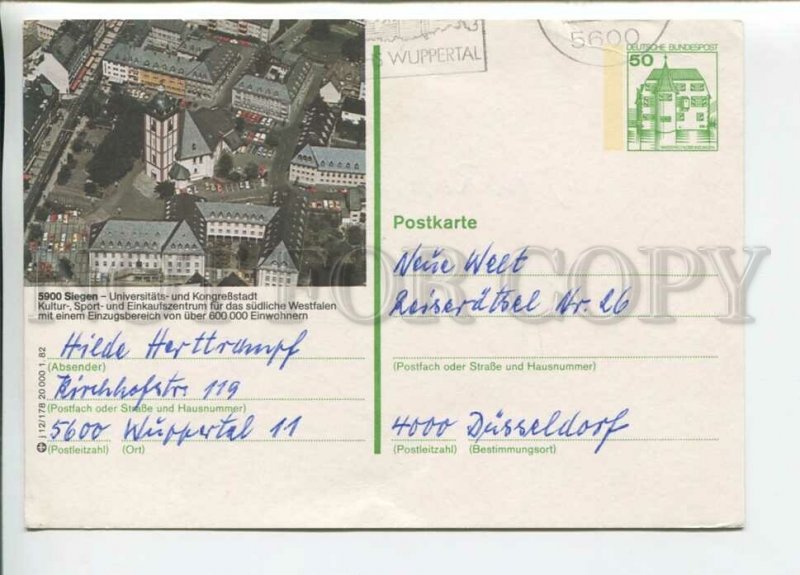 S WUPPERTAL
5600
DEUTSCHE BUNDESPOST
50
Postkarte
5900 Siegen – Universitäts- und Kongreßstadt
Kultur-, Sport- und Einkaufszentrum für das südliche Westfalen
mit einem Einzugsbereich von über 600 000 Einwohnern
Neue Welt
Reiserätsel Nr. 26
Hilde Herttrampf
(Absender)
Kirchhofstr. 119
(Postfach oder Straße und Hausnummer)
5600 Wuppertal 11
(Postleitzahl) (Ort)
(Postfach oder Straße und Hausnummer)
4000 Düsseldorf
(Postleitzahl) (Bestimmungsort)
j 12/178 20 000 1.82
FOR COPY